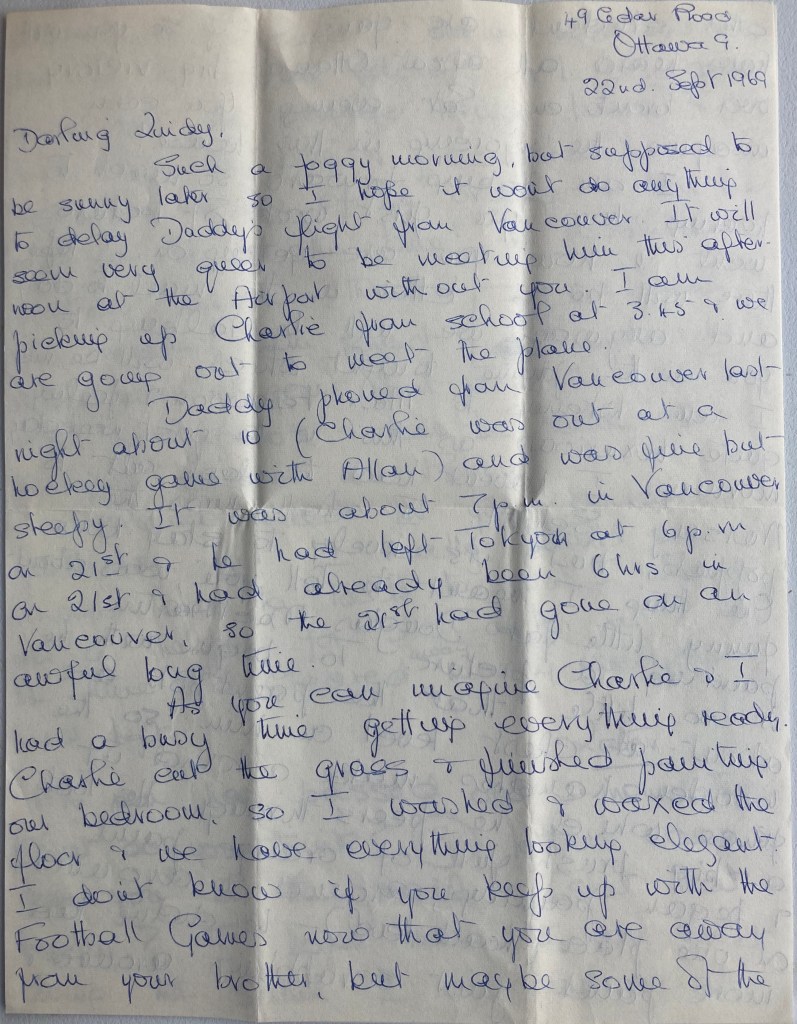 49 Cedar Road
Ottawa 9.
22nd. Sept 1969
Darling
Such a foggy morning, but supposed to
be sunny later so I hope it wont do anything
to delay Daddy's flight from Vancouver. It will
seem very queer to be meeting him this after-
noon at the Airport without you. I am
picking up Charlie from school at 3.45 & we
are going out to meet the plane.
Daddy phoned from Vancouver last
night about 10 (Charlie was out at a
hockey game with Allan) and was fine but
sleepy. It was about 7 p.m. in Vancouver
on 21st & he had left Tokyo at 6 p.m
on 21st & had already been 6 hrs in
Vancouver, so the 21st had gone on an
awful long time.
As you can imagine Charlie & I
had a busy time getting everything ready.
Charlie cut the grass & finished painting
our bedroom, so I washed & waxed the
floor & we have everything looking elegant.
I dont know if you keep up with the
Football Games now that you are away
from your brother, but maybe some of the